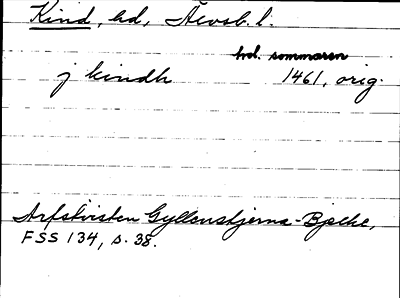 Kind, hd, Älvsb. l.
hel. sommaren
j kindh 1461, orig.
Arfstvisten Gyllenstjerna-Bjelke,
FSS 134, s. 38.